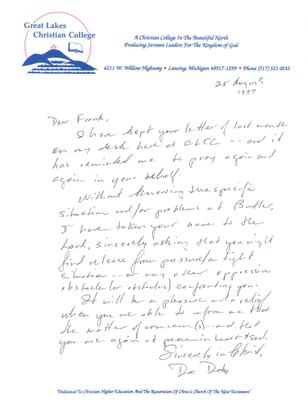 Great Lakes
Christian College
A Christian College In The Beautiful North
Producing Servant Leaders For The Kingdom of God
6211 W. Willow Highway • Lansing, Michigan 48917-1299 • Phone (517) 321-0242
25 August,
1997
Dear Frank,
I have kept your letter of last month
on my desk here at GLCC -- and it
has reminded me to pray again and
again in your behalf.
Without knowing the specific
situation and/or problems at Butler,
I have taken your name to the
Lord, sincerely asking that you might
find release from pressure/a tight
situation -- or any other oppressive
obstacle (or obstacles) confronting you.
It will be a pleasure and a relief
when you are able to inform me that
the matter of concern(s) -- and that
you are again at peace in heart & soul.
Sincerely in Christ,
"Dedicated To Christian Higher Education And The Restoration Of Christ's Church Of The New Testament"